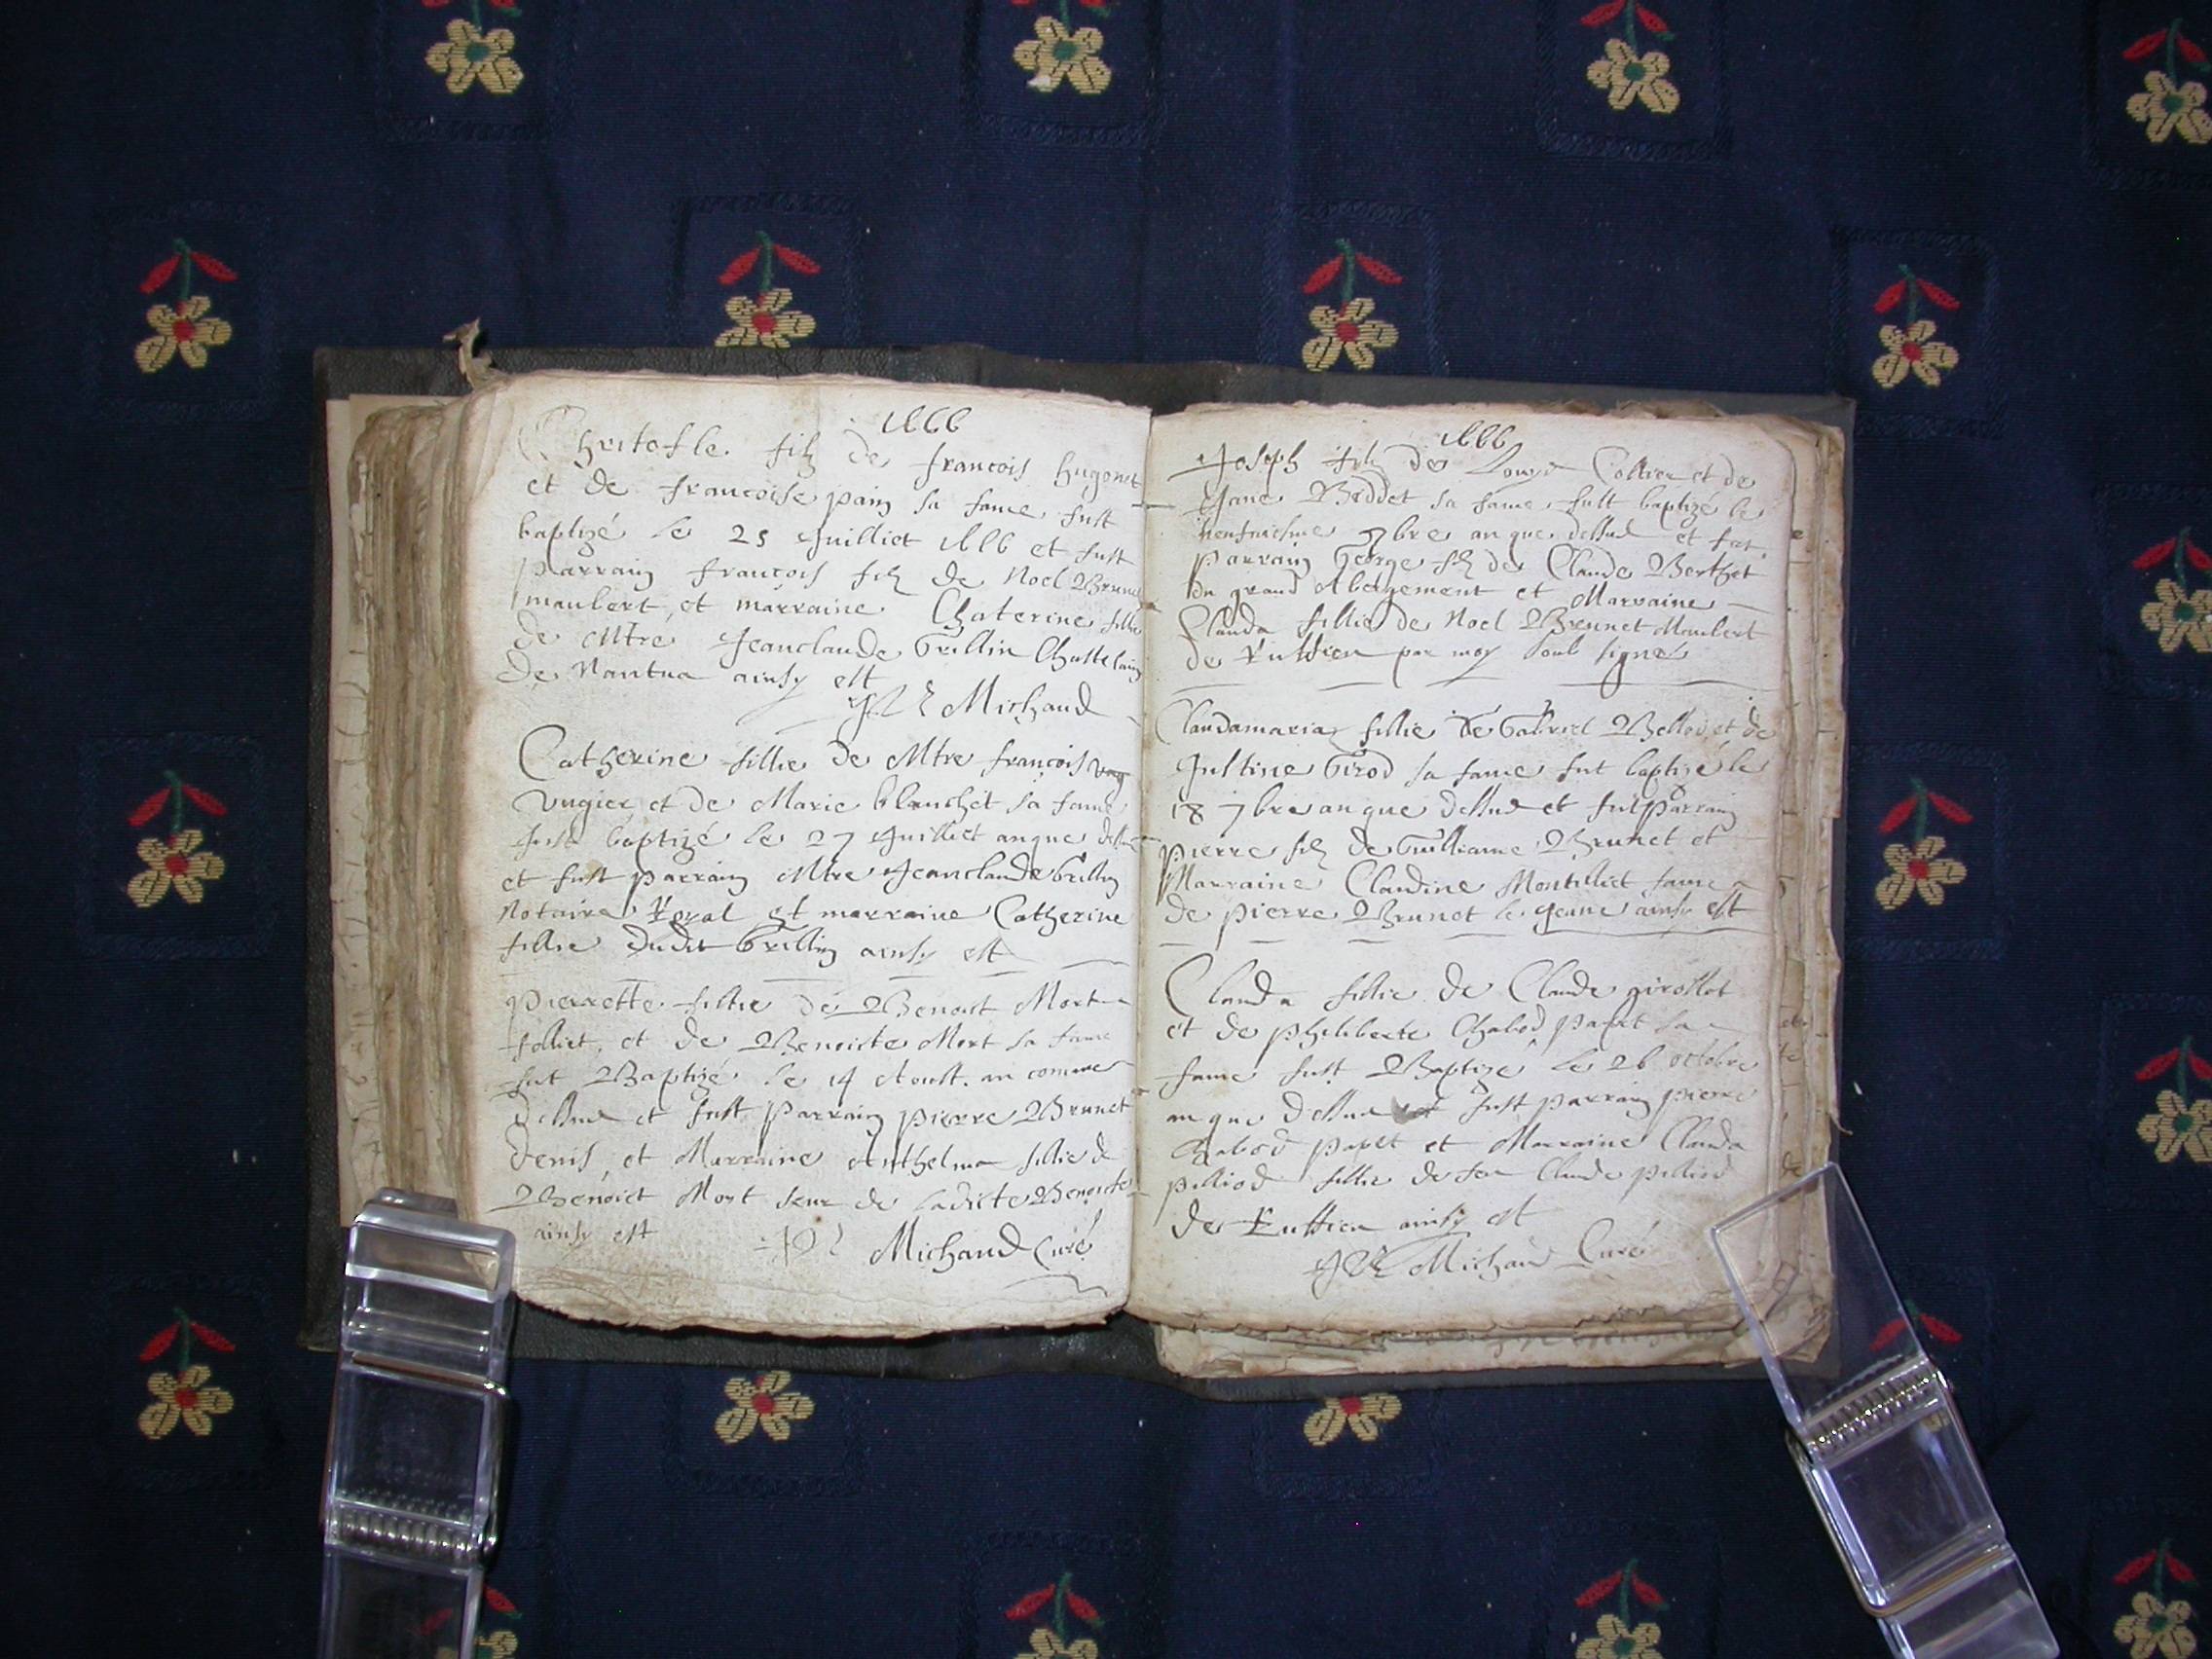 1666
Christofle filz de francois hugonet
et de francoise pain sa fame fust
baptizé le 25 Juilliet 1666 et fust
parrain francois filz de Noel Brunet
maulert et marraine Chaterine fillie
de Mtre Jeanclaude Grillin Chastelain
de Nantua ainsy est
Michaud
Catherine fillie de Mtre francois
vugier et de Marie blanchet sa fame
fust baptizé le 27 Juilliet an que dessus
et fust parrain Mtre Jeanclaude Grillin
Notaire Royal et marraine Catherine
fillie dudit Grillin ainsy est
pierrette fillie de Benoict Mort
folliet et de Benoicte Mort sa fame
fut Baptizé le 14 Aoust an comme
dessus et fust parrain pierre Brunet
denis et Marraine Anthelma fillie de
Benoict Mort seur de ladicte Benoicte
ainsy est
Michaud Curé
1666
Joseph filz de Louys Collier et de
Jane Boddet sa fame fust baptizé le
7bre an que dessus et fut
parrain George filz de Claude Berthet
du grand Abergement et Marraine
Clauda fillie de Noel Brunet Maulert
de Ruffieu par moy soub signé
Claudamaria fillie de Gabriel et de
Justine Girod sa fame fut baptizé le
18 7bre an que dessus et fut parrain
pierre filz de Guilliame Brunet et
Marraine Claudine Montilliet fame
de pierre Brunet le jeune ainsy est
Clauda fillie de Claude girollet
et de philiberte Chabod papet sa
fame fust Baptizé le 26 octobre
an que dessus et fust parrain pierre
Chabod papet et Marraine Clauda
pilliod fillie de feu Claude pilliod
de Ruffieu ainsy est
Michaud Curé